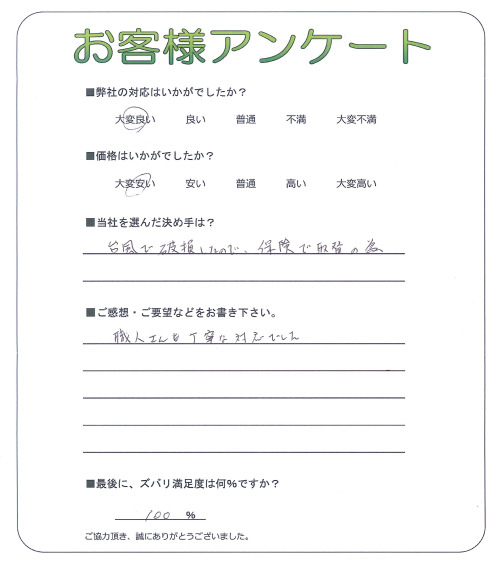 お客様アンケート
■弊社の対応はいかがでしたか？
大変良い 良い 普通 不満 大変不満
■価格はいかがでしたか？
大変安い 安い 普通 高い 大変高い
■当社を選んだ決め手は？
台風で破損したので、保険で取替の為
■ご感想・ご要望などをお書き下さい。
職人さんも丁寧な対応でした
■最後に、ズバリ満足度は何％ですか？
100 ％
ご協力頂き、誠にありがとうございました。